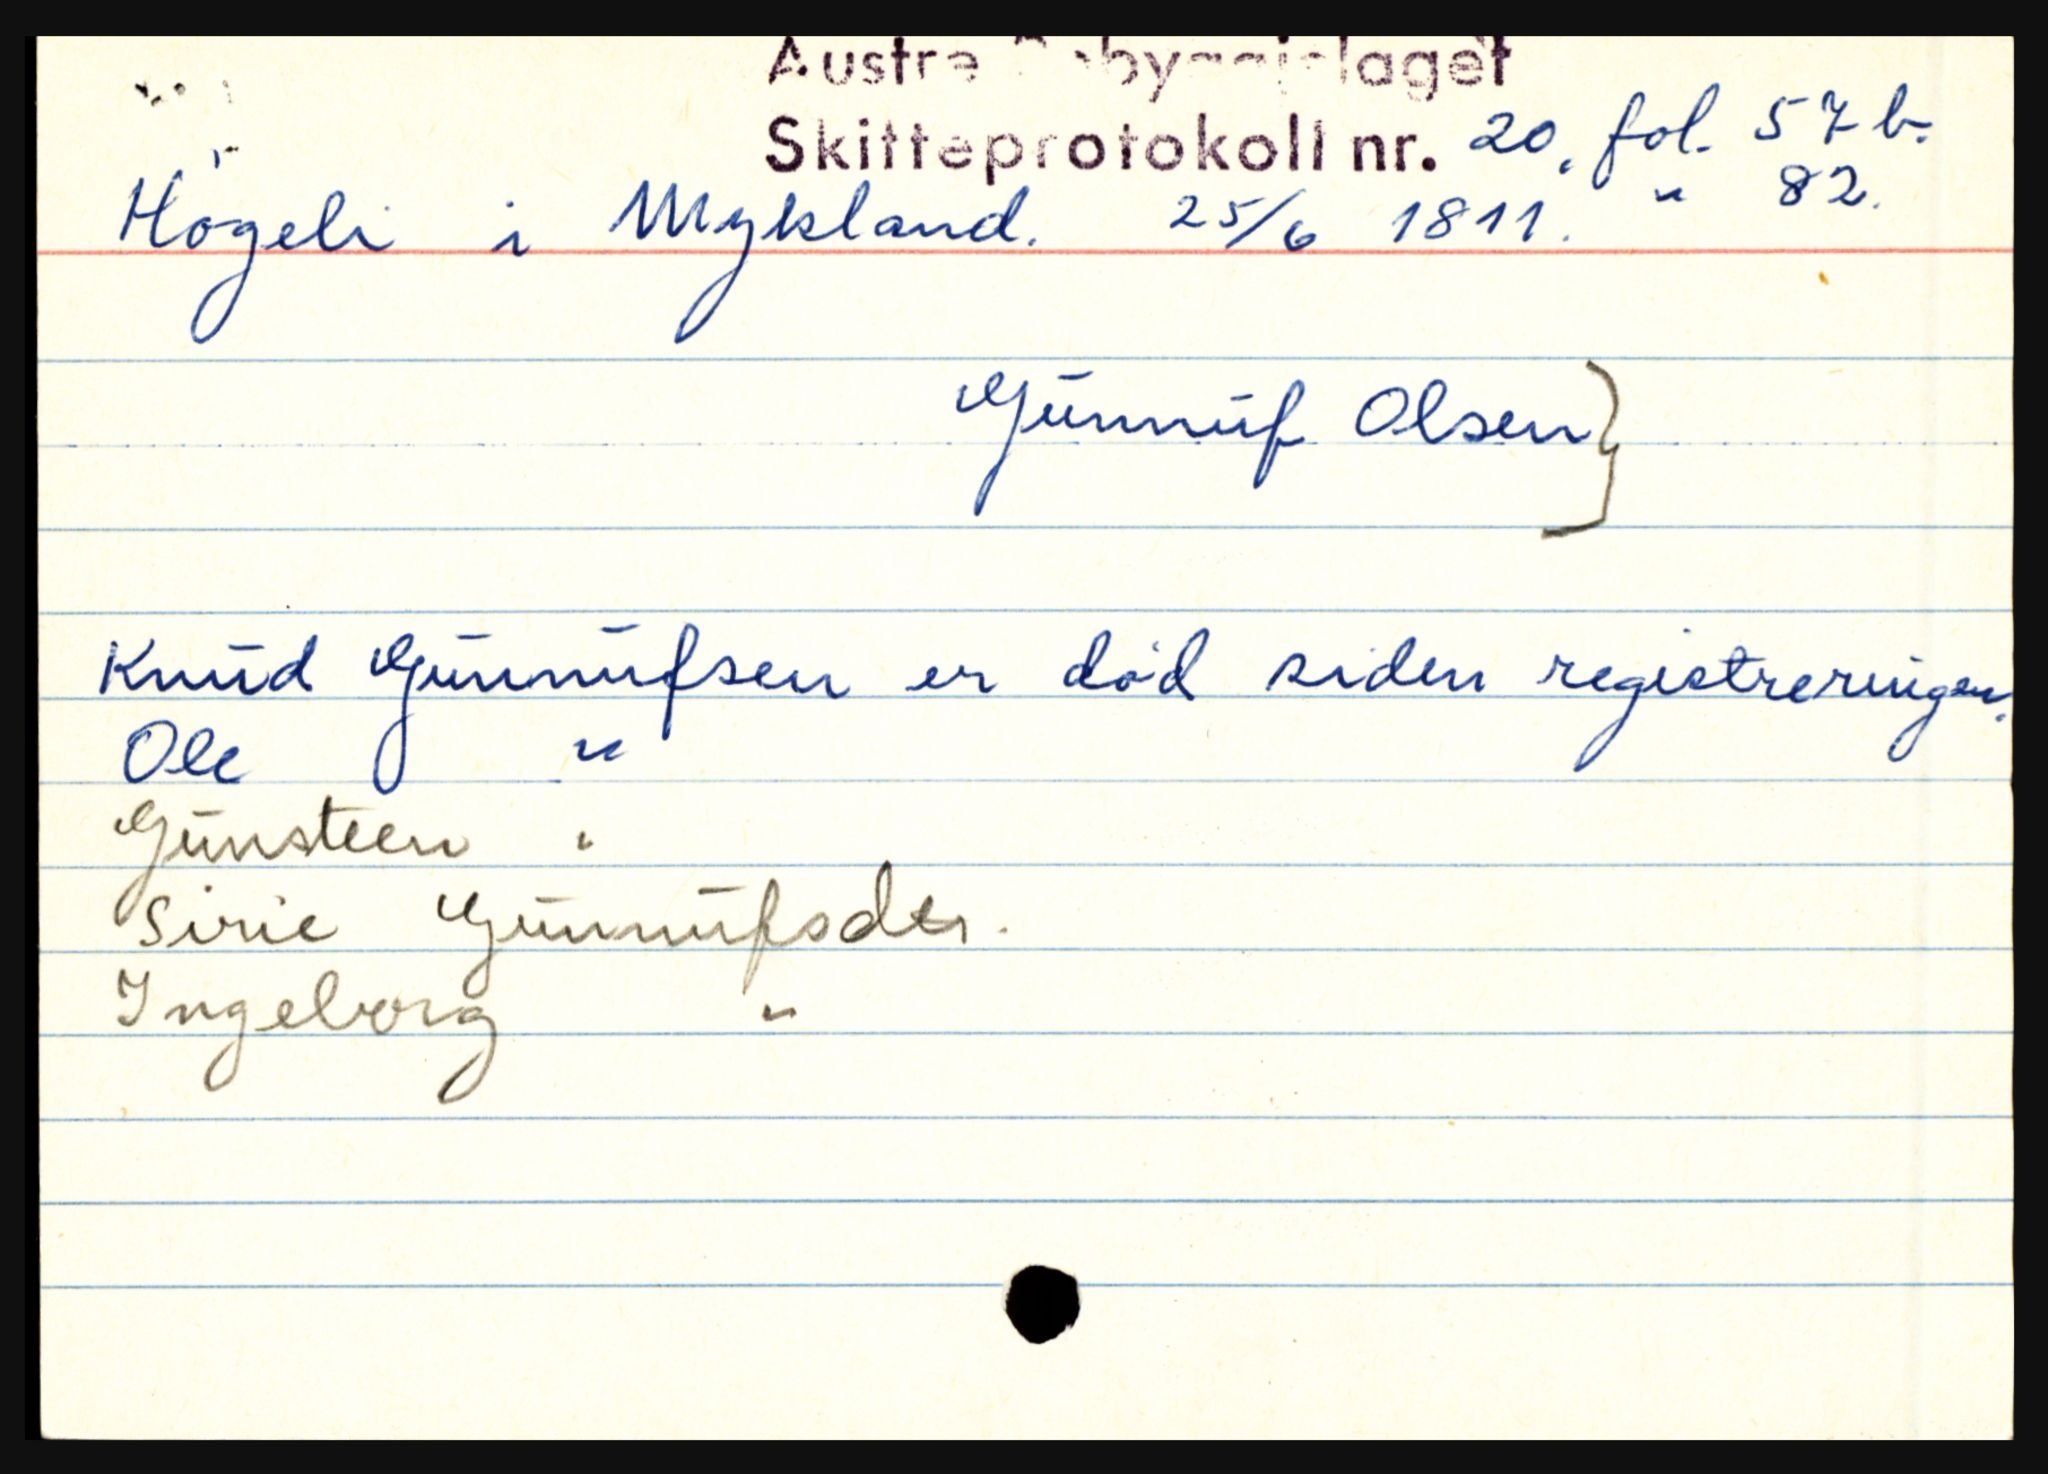 Austre Råbyggjelaget
Skifteprotokoll nr. 20. fol. 57b.
Høgeli i Mykland. 25/6 1811. " 82.
Gunnuf Olsen}
Knud Gunnufsen er død siden registreringen.
Ole "
Gunsteen "
Sirie Gunnufsdtr.
Ingeborg "